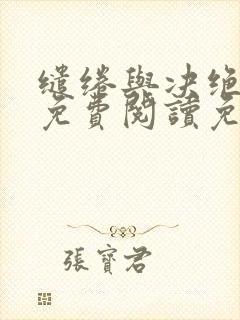 缱绻與决绝
免費閱讀免
張寶君